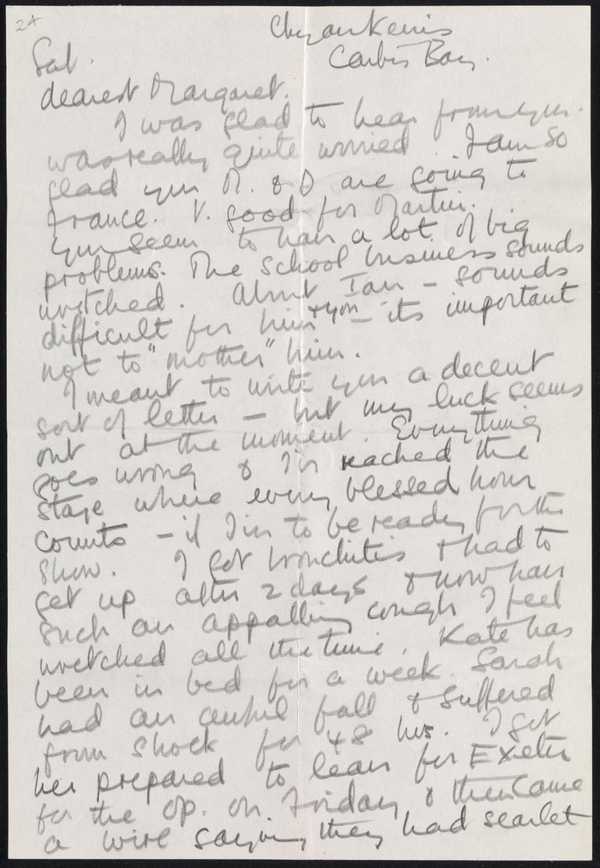 24
Chy an Kerris
Carbis Bay.
Sat.
dearest Margaret.
I was glad to hear from you.
was really quite worried. I am so
glad you M. & D are going to
France. V. good for Martin.
You seem to have a lot of big
problems. The School business sounds
wretched. About Ian – sounds
difficult for him + you – its important
not to "mother" him.
I meant to write you a decent
sort of letter – but my luck seems
out at the moment. Everything
goes wrong & I've reached the
stage where every blessed hour
counts – if I'm to be ready for the
show. I got bronchitis & had to
get up after 2 days & now have
such an appalling cough I feel
wretched all the time. Kate has
been in bed for a week. Sarah
had an awful fall & suffered
from shock for 48 hrs. I got
her prepared to leave for Exeter
for the op. on Friday & then came
a wire saying they had scarlet